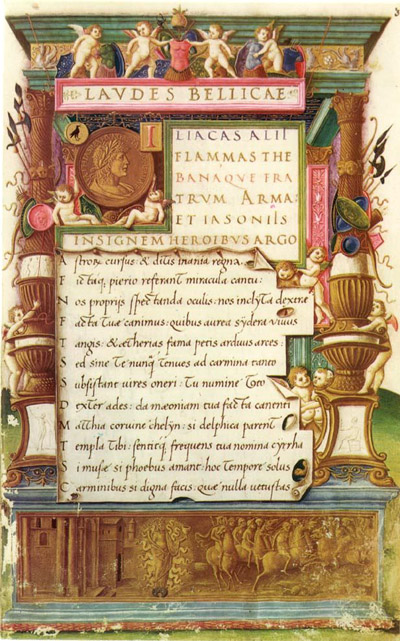 LAVDES BELLICAE
ILIACAS ALII
FLAMMAS THE
BANAQVE FRA
TRVM ARMA:
ET IASONIIS
INSIGNEM HEROIBVS ARGO
Astrorum cursus: & ditis inania regna.
Fictaq; pierio referant miracula cantu:
Nos proprijs spectanda oculis: nos inclyta dextrae
Facta tuae canimus: quibus aurea sydera vivus
Tangis: & aetherias fama petis arduus arces:
Sed sine Te nunq̃ tenues ad carmina tanto
Subsistant uires oneri: Tu numine Toto
Dexter ades: da maeoniam tua facta canenti
Matthia coruine chelyn: si delphica parent
Templa Tibi: sentitq; frequens tua nomina cyrrha
Si musae si phoebus amant: hoc Tempore solus
Carminibus si digna facis: quae nulla vetustas